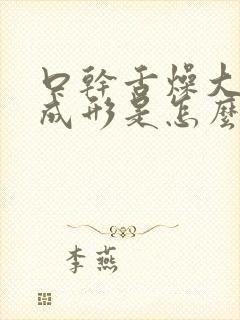 口幹舌燥大
成形是怎麼
李燕